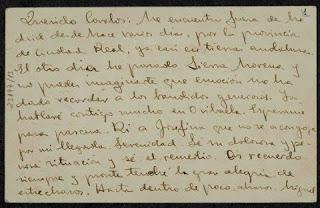 Querido Carlos: Me encuentro fuera de Ma
drid desde hace varios días, por la provincia
de Ciudad Real, ya casi en tierra andaluza.
El otro día he pasado Sierra Morena y
no puedes imaginarte que emoción me ha
dado recordar a los bandidos generosos. Ya
hablaré contigo mucho en Orihuela. Espérame
para pascua. Di a Josefina que no se acongoje
por mi llegada. Serenidad. Sé su dolorosa y pe
nosa situación y sé el remedio. Os recuerdo
siempre y pronto tendré la gran alegría de
estrecharos. Hasta dentro de poco. Miguel